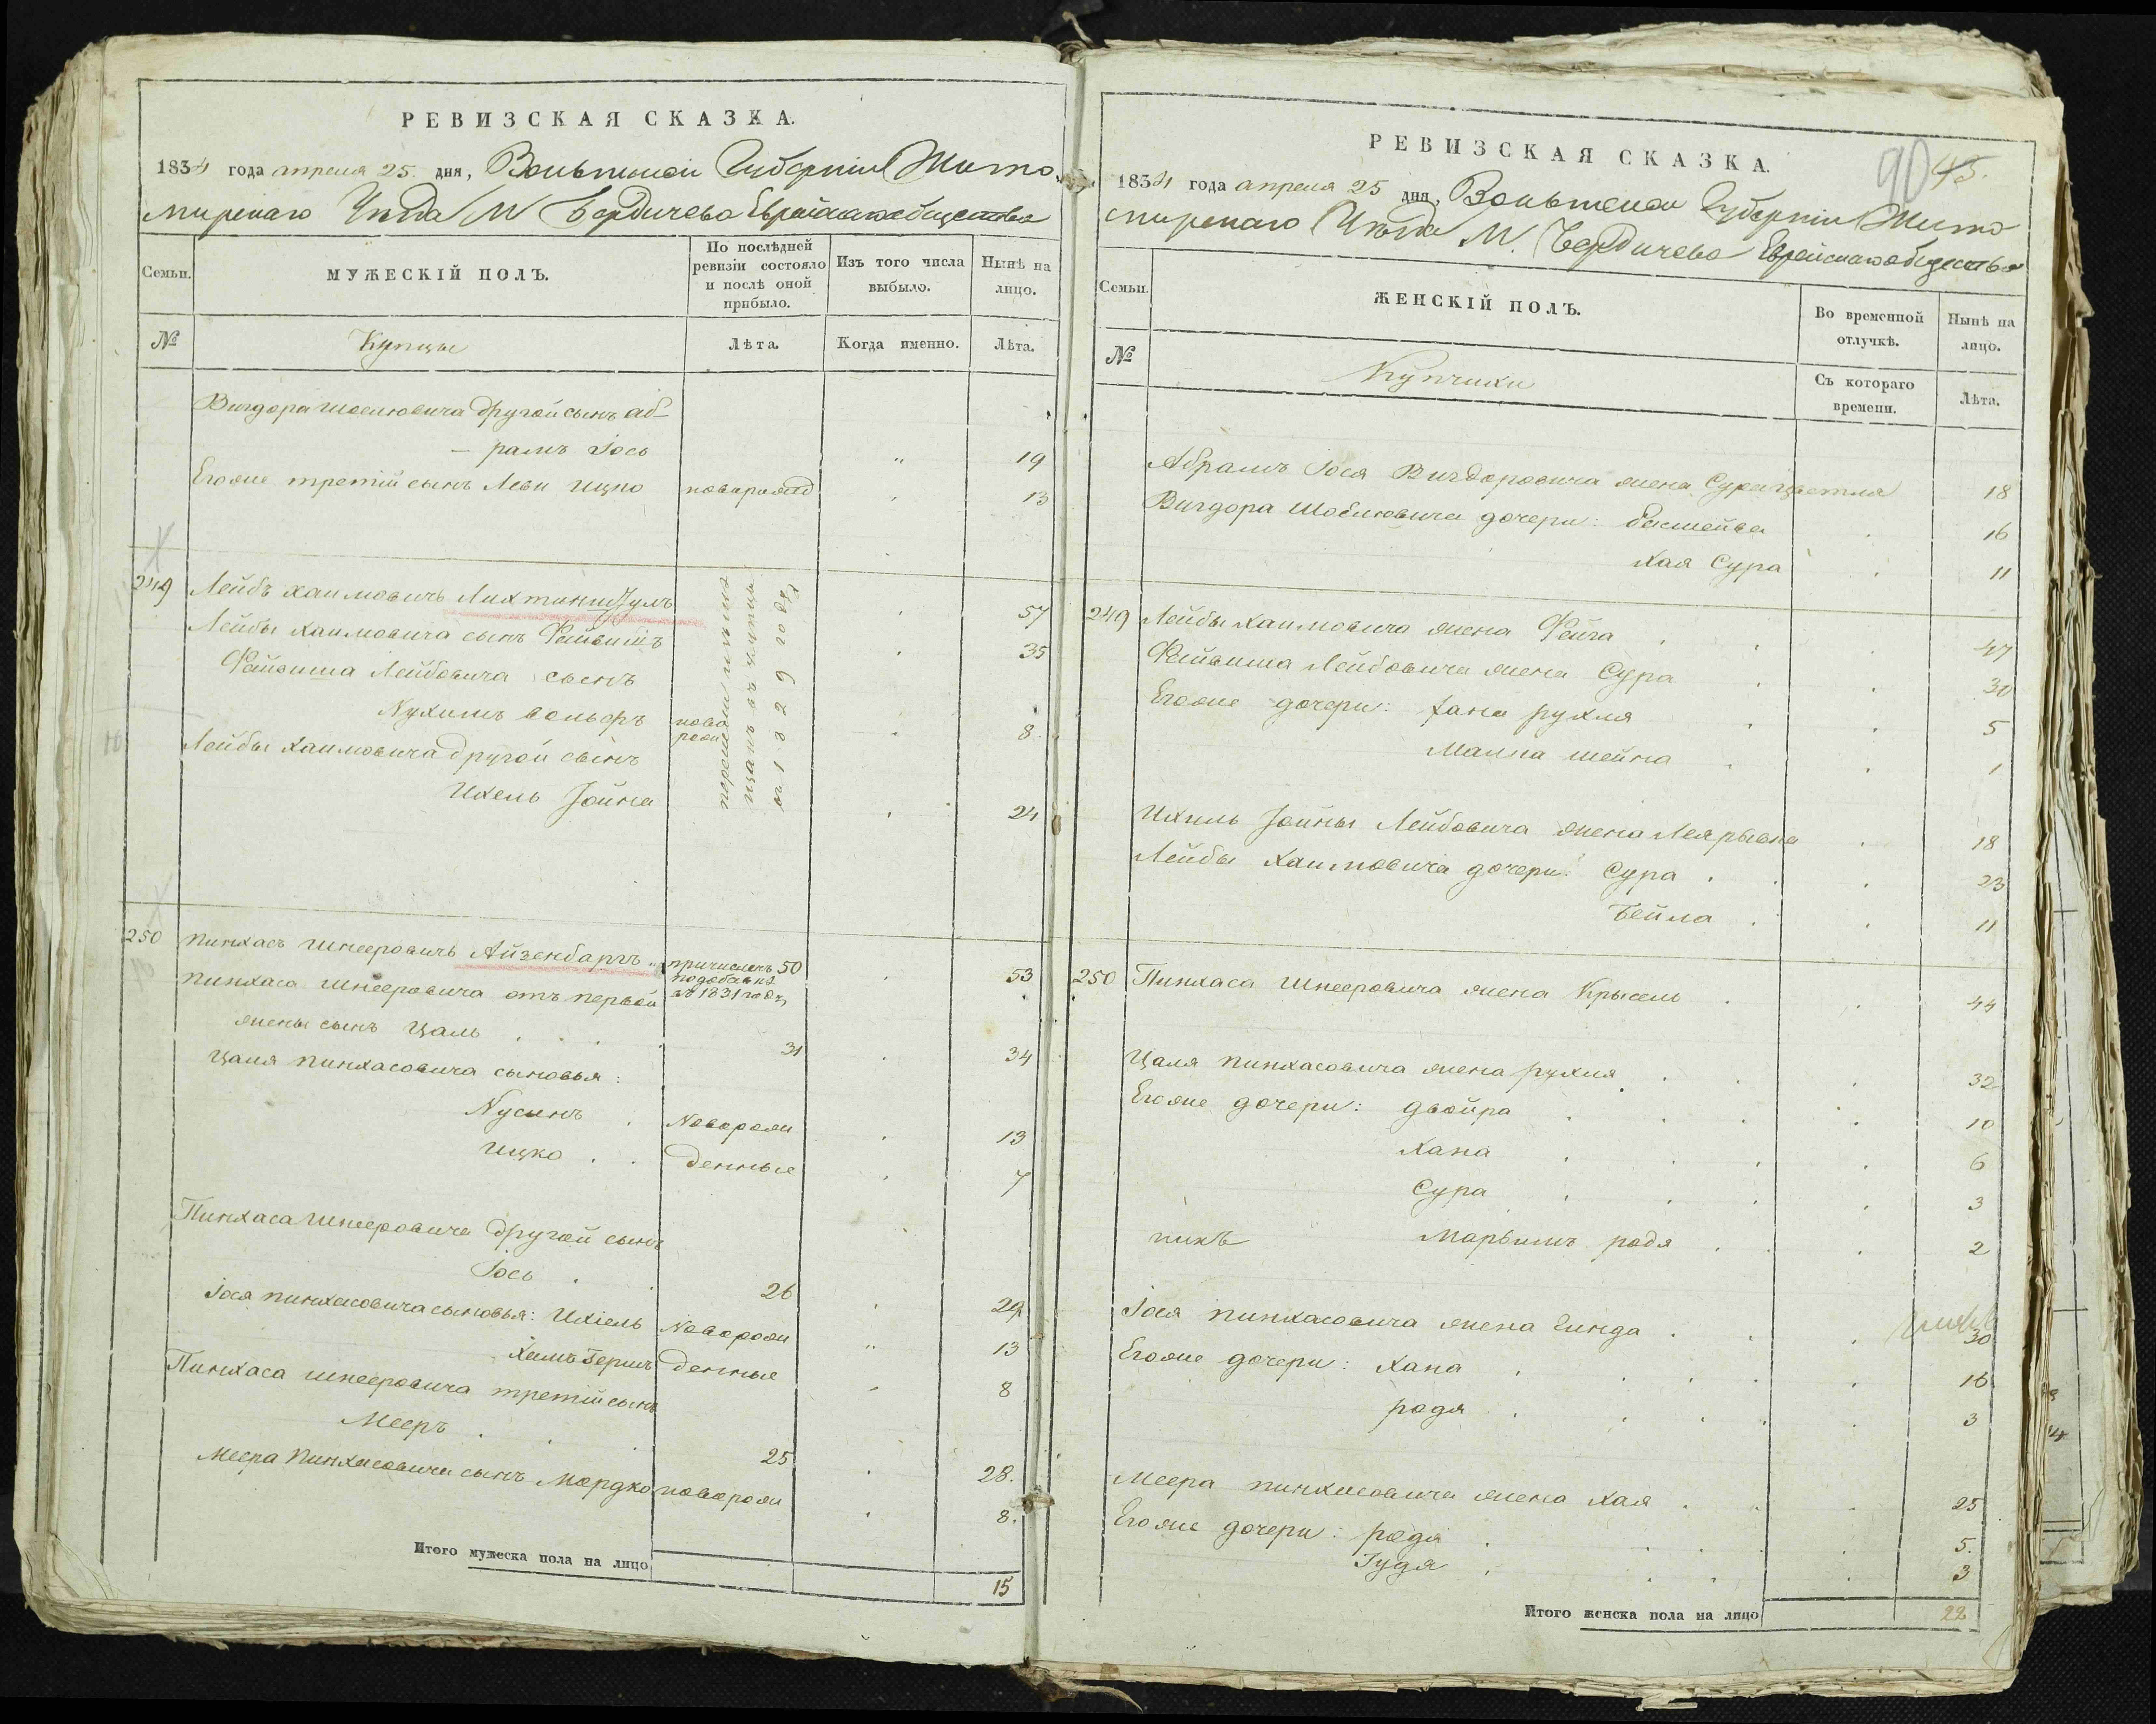 РЕВИЗСКАЯ СКАЗКА.
1834 года апреля 25 дня, Волынской Губерніи Жито-
мирскаго Уѣзда М. Бердичева Еврейскаго общества
Семьи.
МУЖЕСКІЙ ПОЛЪ.
По послѣдней ревизіи состояло и послѣ оной прибыло.
Изъ того числа выбыло.
Нынѣ на лицо.
№
Купцы
Лѣта.
Когда именно.
Лѣта.
Вигдора Шоелювича другой сынъ Аб-
рамъ Іось " 19
Егоже третій сынъ Леви Ицко новорожд 13
249 Лейбъ Хаимовичъ Лихтин 57
Лейбы Хаимовича сынъ Файвишъ 35
Файвиша Лейбовича сынъ
Нухимъ Вольфъ ново рож 8.
Лейбы Хаимовича другой сынъ
Ихель Іойна 24
перешли изъ мѣ
щанъ въ купцы
въ 1829 году
250 Пинхасъ Шнееровичъ Айзенбаргъ причисленъ 50 53
по добавкѣ
въ 1831 году
Пинхаса Шнееровича отъ первой
жены сынъ Цаль 31 34
Цаля Пинхасовича сыновья:
Нусинъ Новорож 13
Ицко денные 7
Пинхаса Шнееровича другой сынъ
Іось 26 29
Іося Пинхасовича сыновья: Ихіель Новорож " 13
Хаимъ Гершъ денные 8
Пинхаса Шнееровича третій сынъ
Мееръ 25 28.
Меера Пинхасовича сынъ Мордко новорож 8.
Итого мужеска пола на лицо 15
РЕВИЗСКАЯ СКАЗКА.
90 43.
1834 года апреля 25 дня, Волынской Губерніи Жито
мирскаго Уѣзда М. Бердичева Еврейскаго общества
Семьи.
ЖЕНСКІЙ ПОЛЪ.
Во временной отлучкѣ.
Нынѣ на лицо.
№
Купчихи
Съ котораго времени.
Лѣта.
Абрамъ Іося Вигдоровича жена Сура Цветля 18
Вигдора Шоелювича дочери: Басшейва 16
Хая Сура 11
249 Лейбы Хаимовича жена Фейга 47
Файвиша Лейбовича жена Сура 30
Егоже дочери: Хана Рухля 5
Малка Шейна 1
Ихиль Іойны Лейбовича жена Лея Рывка 18
Лейбы Хаимовича дочери: Сура 23
Бейла 11
250 Пинхаса Шнееровича жена Крысель 44
Цаля Пинхасовича жена Рухля 32
Егоже дочери: Двойра 10
Хана 6
Сура 3
Марьимъ Родя 2
Іося Пинхасовича жена Гинда 30
Егоже дочери: Хана 16
Родя 3
Меера Пинхасовича жена Хая 25
Егоже дочери: Родя 5.
Гудя 3
Итого женска пола на лицо 22